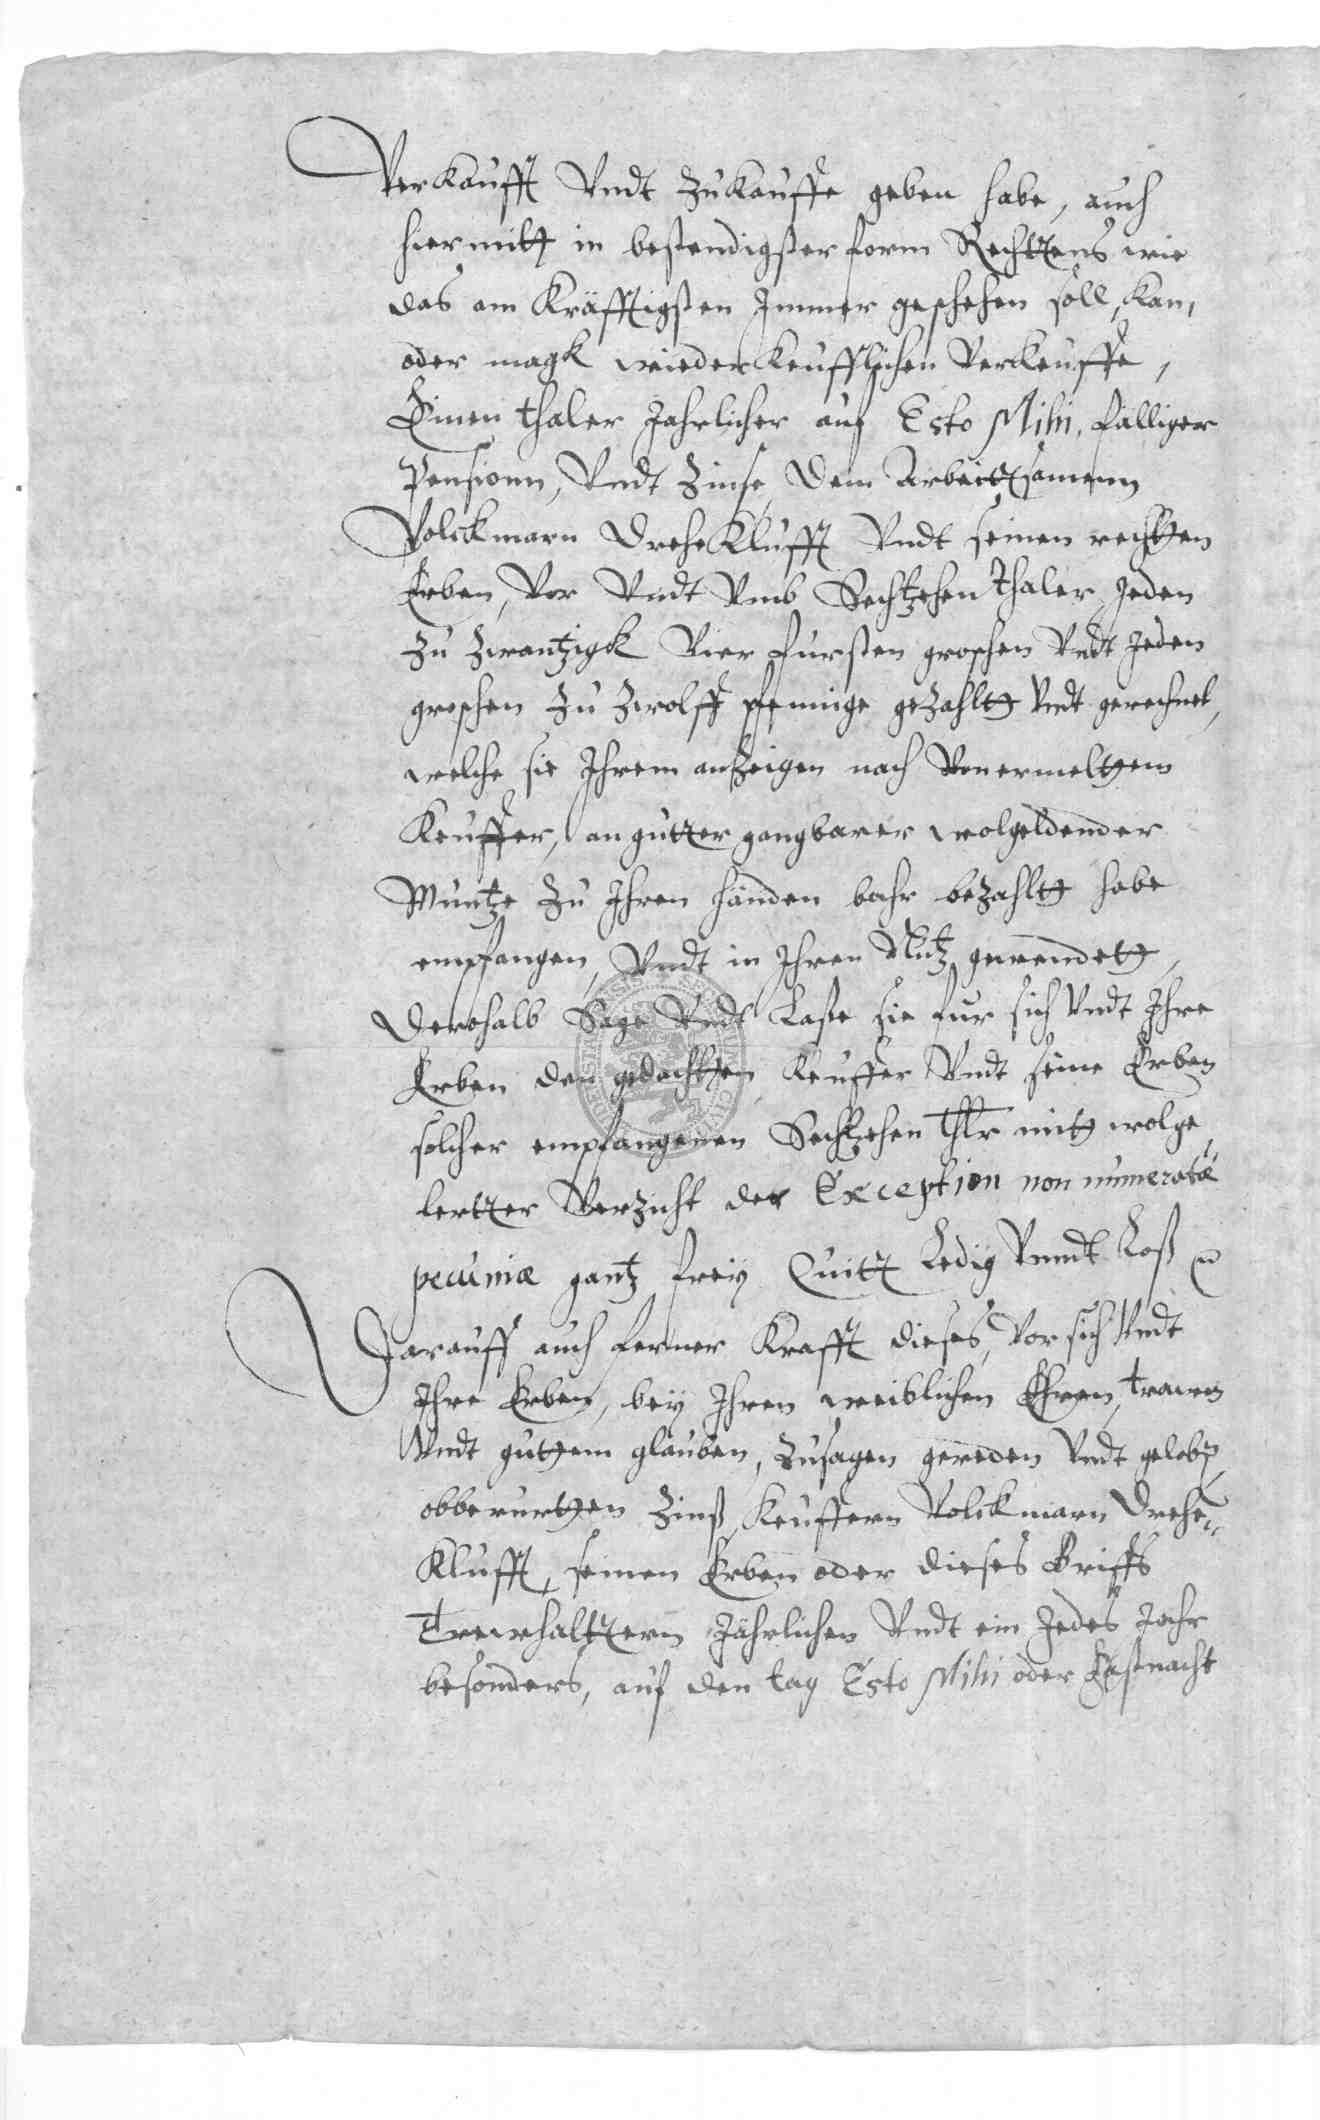 Verkaufft Undt Zukauffe geben habe, auch
hiermitt in bestendigster form Rechttens wie
das am Kräfftigsten Immer geschehen soll, kan,
oder magk wiederkeufflichen Verkeuffe,
Einen thaler Jahrlicher auf Esto Mihi, fälliger
Pensionn, Undt Zinse, dem Arbeittsamenn
Volckmarn DreheKlufft Undt seinen rechtten
Erben, Vor Undt Umb Sechtzehen thaler, Jeden
Zu Zwantzigk Vier fursten groschen Undt Jeden
groschen Zu Zwolff pfennige gezahltt Undt gerechnet,
welche sie Ihrem anzeigen nach Von ermeltem
Keuffer, an gutter gangbarer wolgeldender
Muntze Zu Ihren händen bahr bezahltt habe
empfangen, Undt in Ihren Nutz gewendett,
Derohalb Sage Undt Laße sie fur sich Undt Ihre
Erben den gedachtten Keuffer Undt seine Erben
solcher empfangenen Sechtzehen Thlr mitt wolge
lertter Verzicht der Exception non numeratæ
pecuniæ gantz frey Quitt Ledig Unndt Loß
Darauff auch ferner Krafft dieses, Vor sich Undt
Ihre Erben, bey Ihren weiblichen Ehren, trawen
Undt guttem glauben, Zusagen gereden Undt geloben
obberurtten Zinß Keuffern Volckmarn Drehe=
Klufft, seinen Erben oder dieses Briffs
Trewhalttern Jährlichen Undt ein Jedes Jahr
besonders, auf den tag Esto Mihi oder Fastnacht